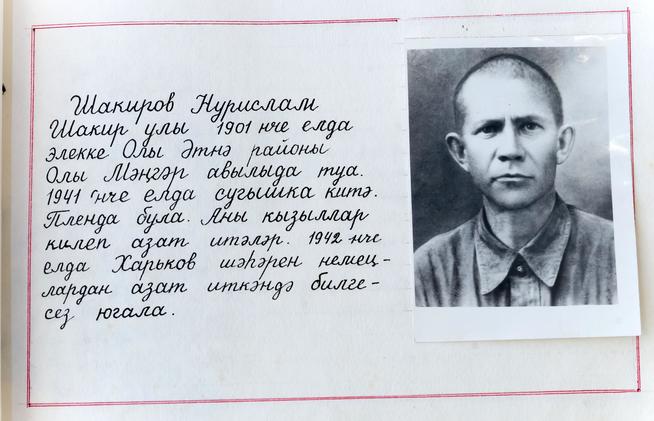 Шакиров Нурислам
Шакир улы 1901 нче елда
элекке Олы Әтнә районы
Олы Мәңгәр авылыда туа.
1941 нче елда сугышка китә.
Пленда була. Аны кызыллар
килеп азат итәләр. 1942 нче
елда Харьков шәһәрен немец-
лардан азат иткәндә билге-
сез югала.